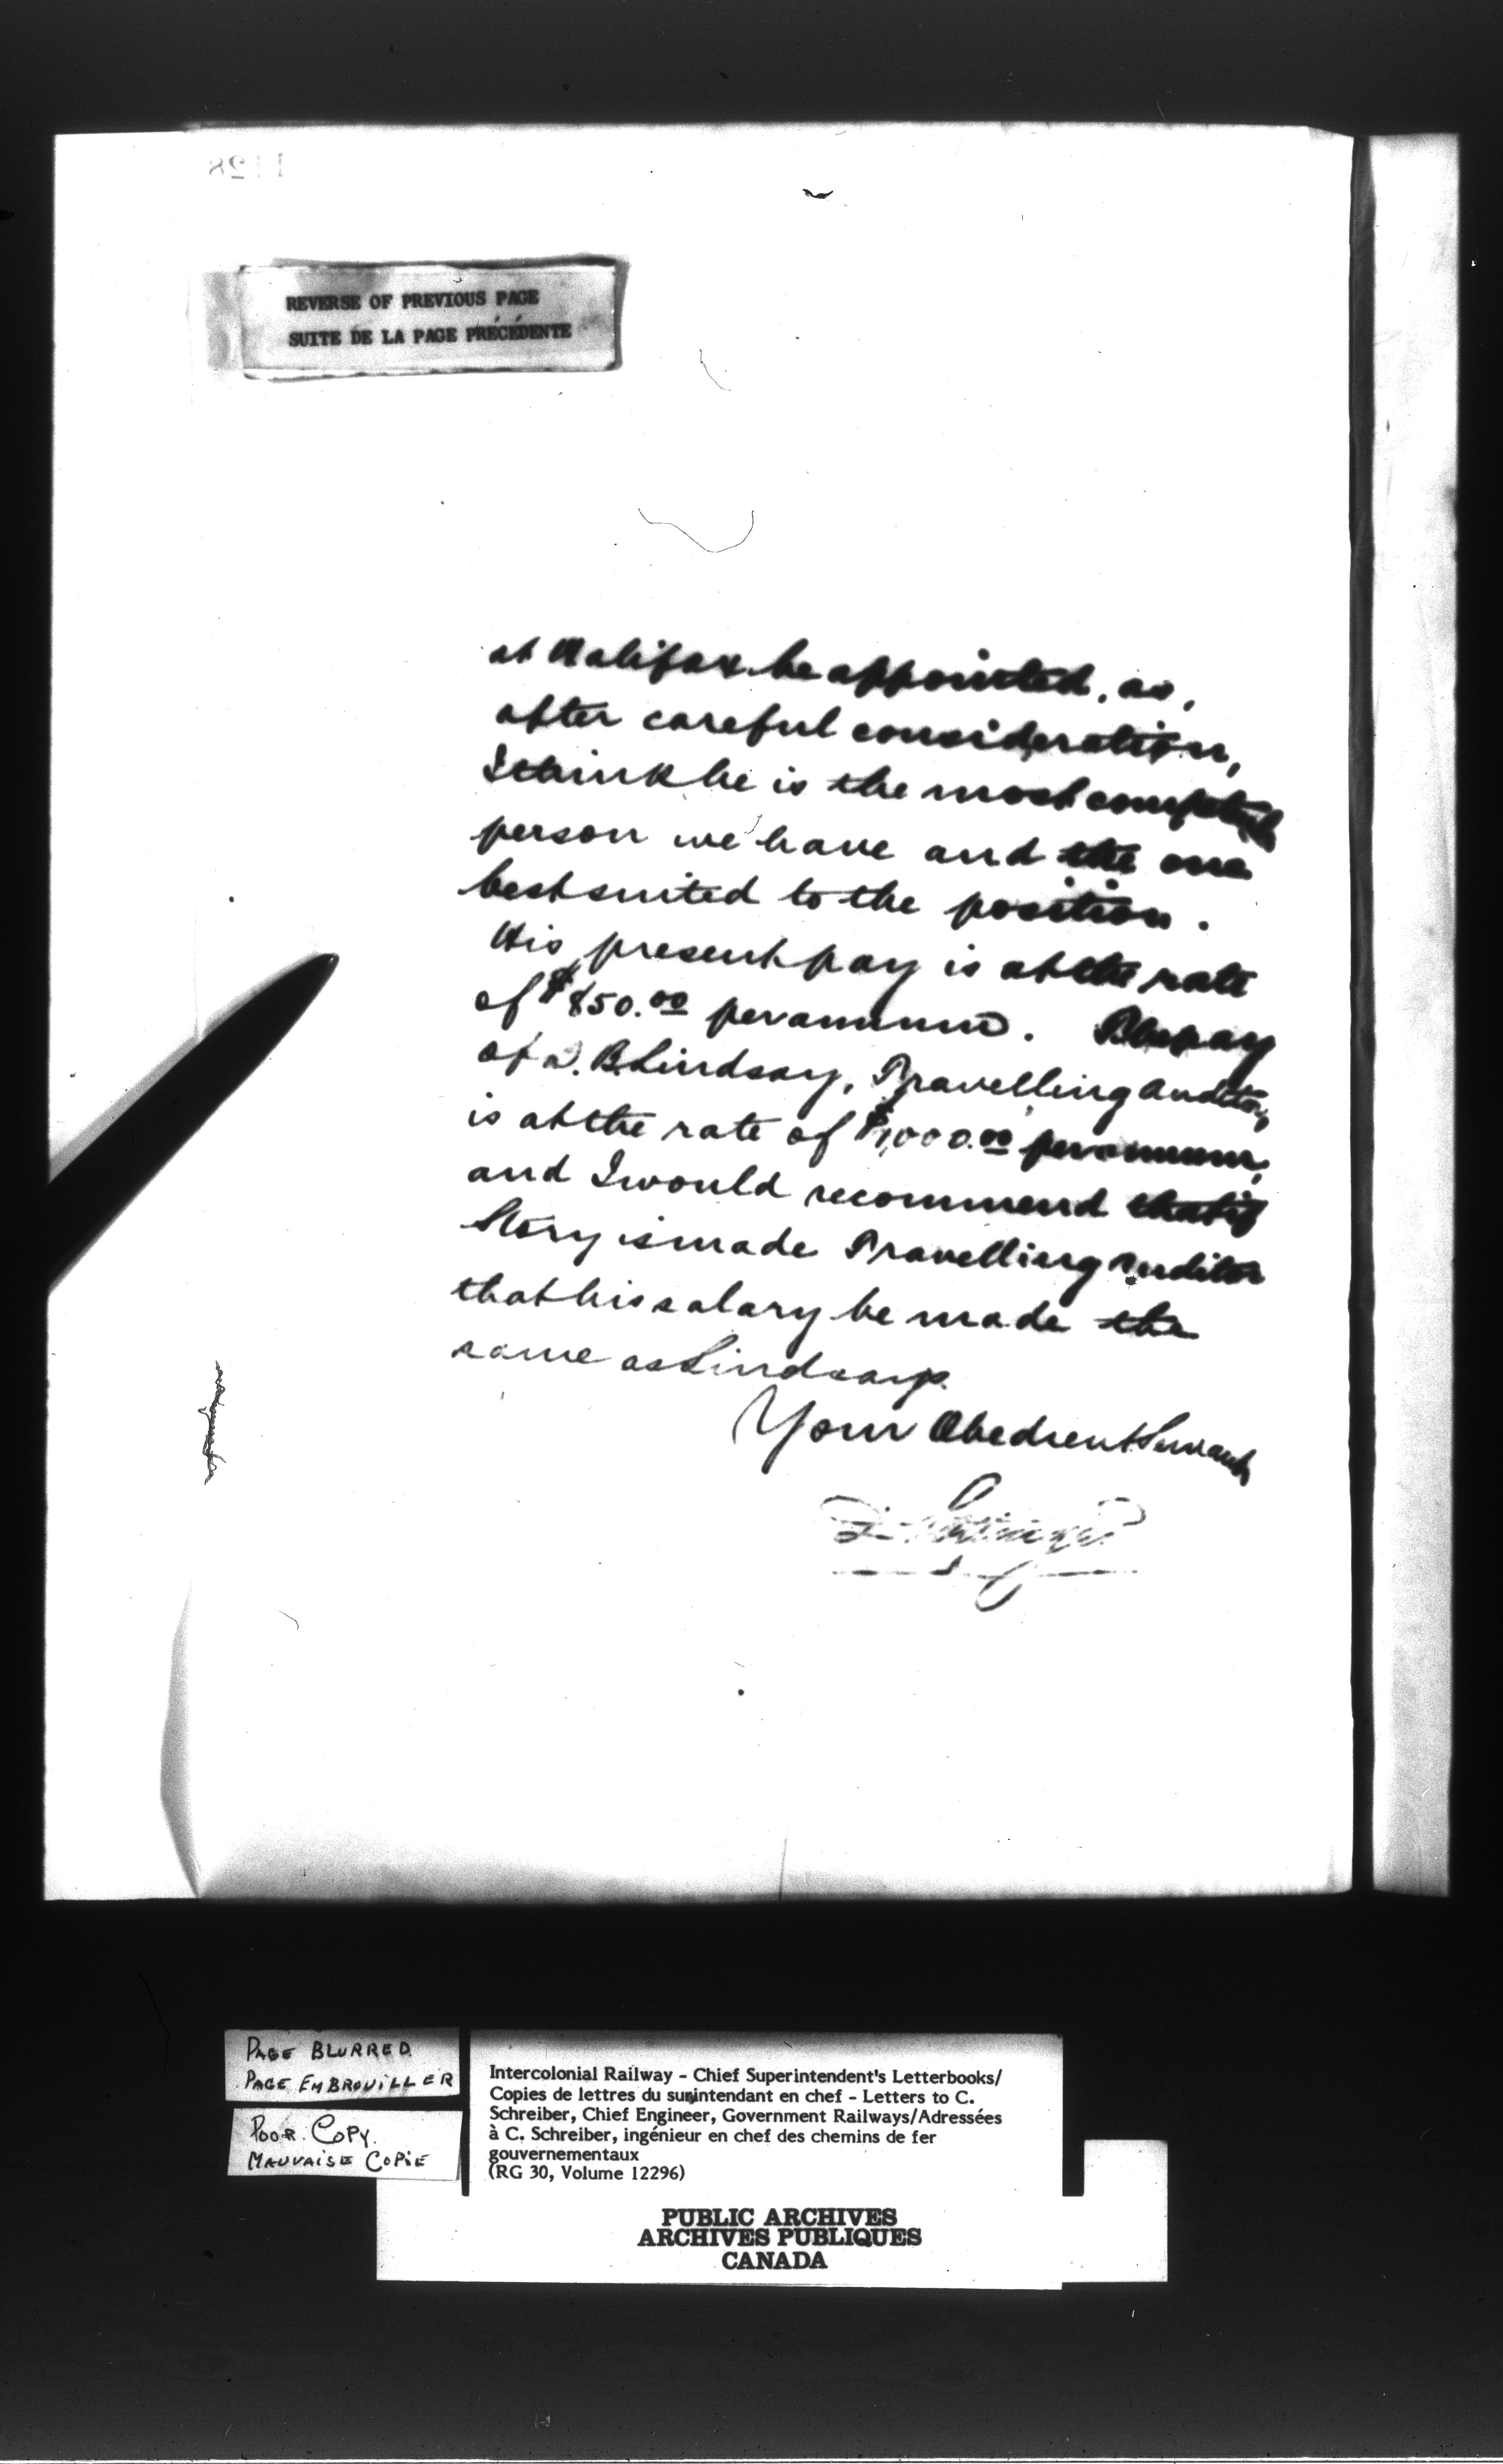 1128
REVERSE OF PREVIOUS PAGE
SUITE DE LA PAGE PRÉCÉDENTE
at Halifax be appointed, as,
after careful consideration,
I think he is the most competent
person we have and the one
best suited to the position.
His present pay is at the rate
of $850.00 per annum. The pay
of W. B. Lindsay, Travelling Auditor,
is at the rate of $1,000.00 per annum,
and I would recommend that if
Story is made Travelling Auditor
that his salary be made the
same as Lindsays.
Your Obedient Servant
PAGE BLURRED.
PAGE EMBROUILLER
POOR. COPY.
MAUVAISE COPIE
Intercolonial Railway - Chief Superintendent's Letterbooks/
Copies de lettres du surintendant en chef - Letters to C.
Schreiber, Chief Engineer, Government Railways/Adressées
à C. Schreiber, ingénieur en chef des chemins de fer
gouvernementaux
(RG 30, Volume 12296)
PUBLIC ARCHIVES
ARCHIVES PUBLIQUES
CANADA